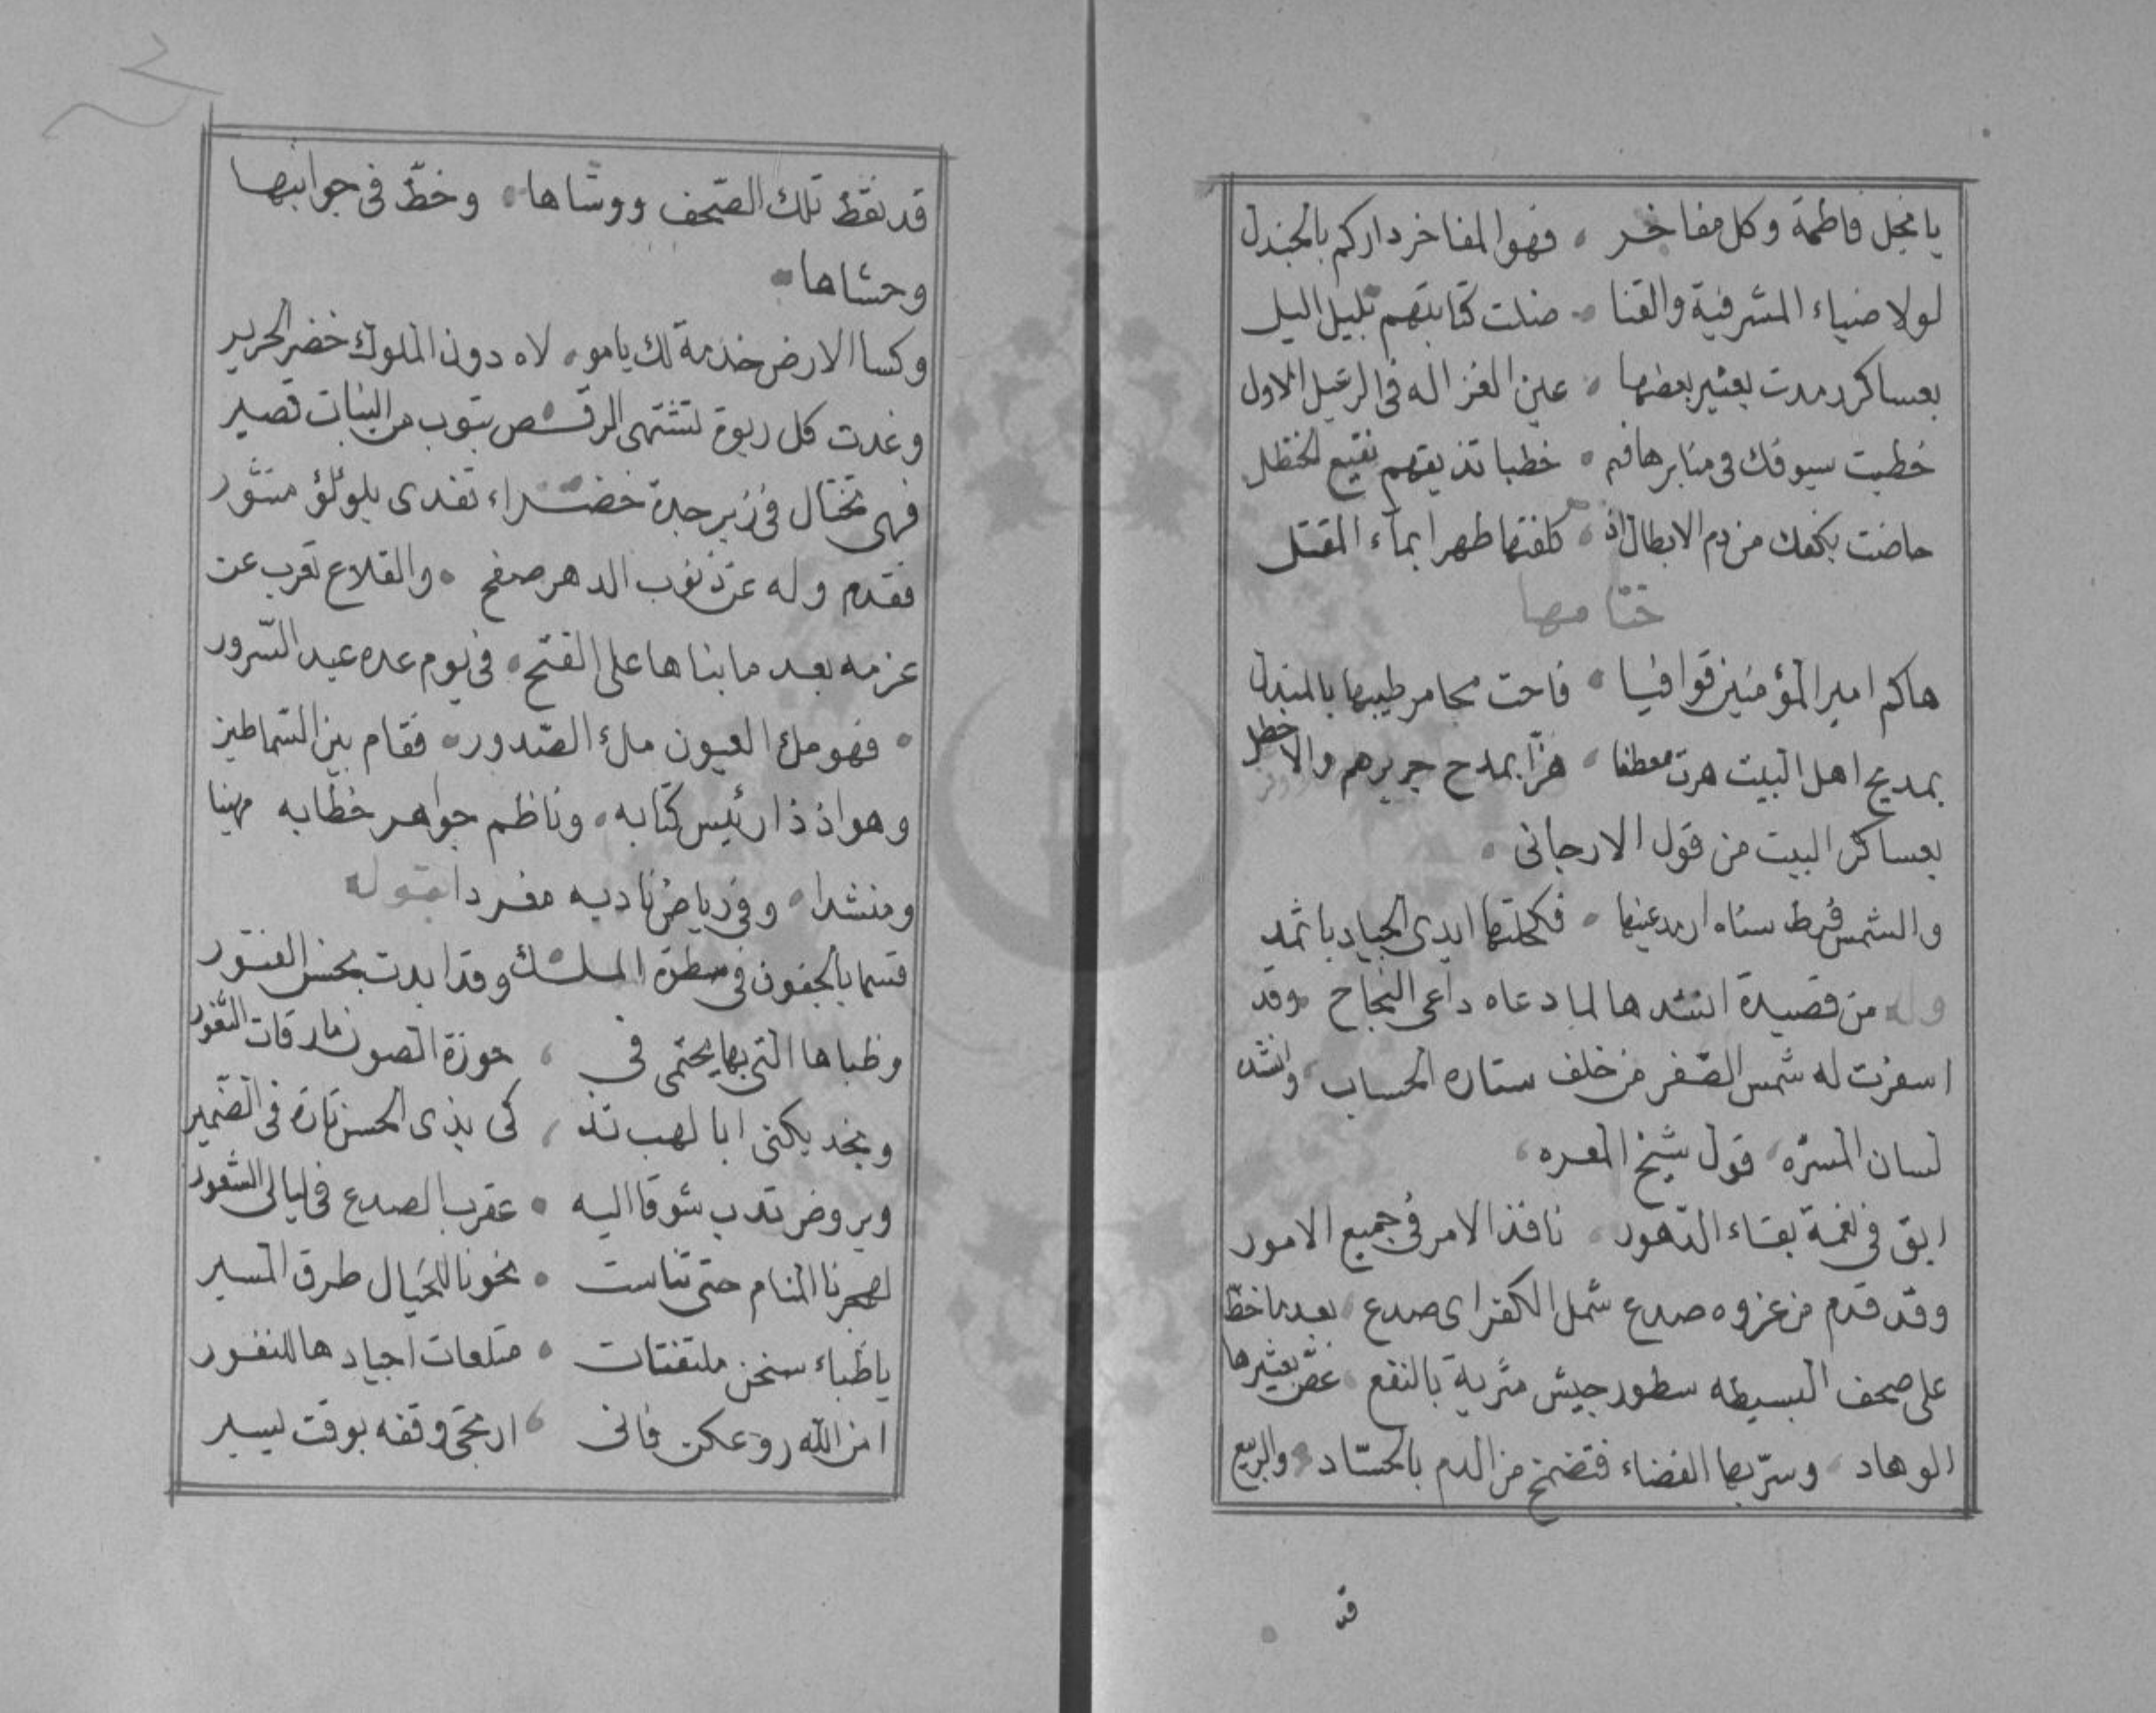 يا نجل فاطمة وكل مفاخر ، فهو المفاخر داركم بالجندل
لولا ضياء المشرفية والقنا ، ضلت كتائبهم بليل اليل
بعساكر رمدت بعثير بعضها ، عين الغزاله فى الرعيل الاول
خطبت سيوفك فى منابر هافهم ، خطبا تذيقهم نقيع الحنظل
حاضت بكفك من دم الابطال اذ ، كلفتها طهرا بماء المقتل
ختامها
هاكم امير المؤمنين قوافيا ، فاحت مجامر طيبها بالمندل
بمديح اهل البيت هزت معطفا ، هزا بمدح جريرهم والاخطل
بعساكر البيت من قول الارجانى ،
والشمس فرط سناه ارمد عينها ، فكحلتها ايدى الجياد باثمد
وله من قصيدة انشدها لما دعاه داعى النجاح وقد
اسفرت له شمس الصفر من خلف ستاره الحساب وانشد
لسان المسره، قول شيخ المعره،
ابق فى نعمة بقاء الدهور ، نافذ الامر فى جميع الامور
وقد قدم من غزوه صدع شمل الكفر اى صدع ، بعد ما خط
على صحف البسيطه سطور جيش متربة بالنقع ، غص بعثيرها
الوهاد ، وسر بها الفضاء فتضمخ من الدم بالحساد ، والربيع
قد
قد نقط تلك الصحف ووشاها ، وخط فى جوانبها
وحشاها ،
وكسا الارض خدمة لك يامو ، لاه دون الملوك خضر الحرير
وغدت كل ربوة تشتهى الرقص بثوب من النبات قصير
فهى تختال فى زبرجدة خضراء تغدى بلؤلؤ منثور
فقدم وله عن ذنوب الدهر صفح ، والقلاع تعرب عن
عزمه بعد ما بناها على الفتح ، فى يوم عده عيد السرور
، فهو ملء العيون ملء الصدور ، فقام بين السماطين
وهو اذ ذا رئيس كتابه ، وناظم جواهر خطابه مهنيا
ومنشدا ، وفى رياض ناديه مفردا بقوله
قسما بالجفون فى سطوة الملك وقد ابدت بحسن الفتور
وظباها التى بها يحتمى فى ، حوزة الصون بارقات الثغور
وبخد يكنى ابا لهب تذ ، كى بذى الحسن تارة فى الضمير
وبروض تدب شوقا اليه ، عقرب الصدع فى ليالى الشعور
لهجرنا المنام حتى تناست ، نحونا للخيال طرق المسير
ياظباء سنحن ملتفتات ، متلعات اجيادها للنفور
امن الله روعكن فانى ، ارتجى وقفه بوقت يسير